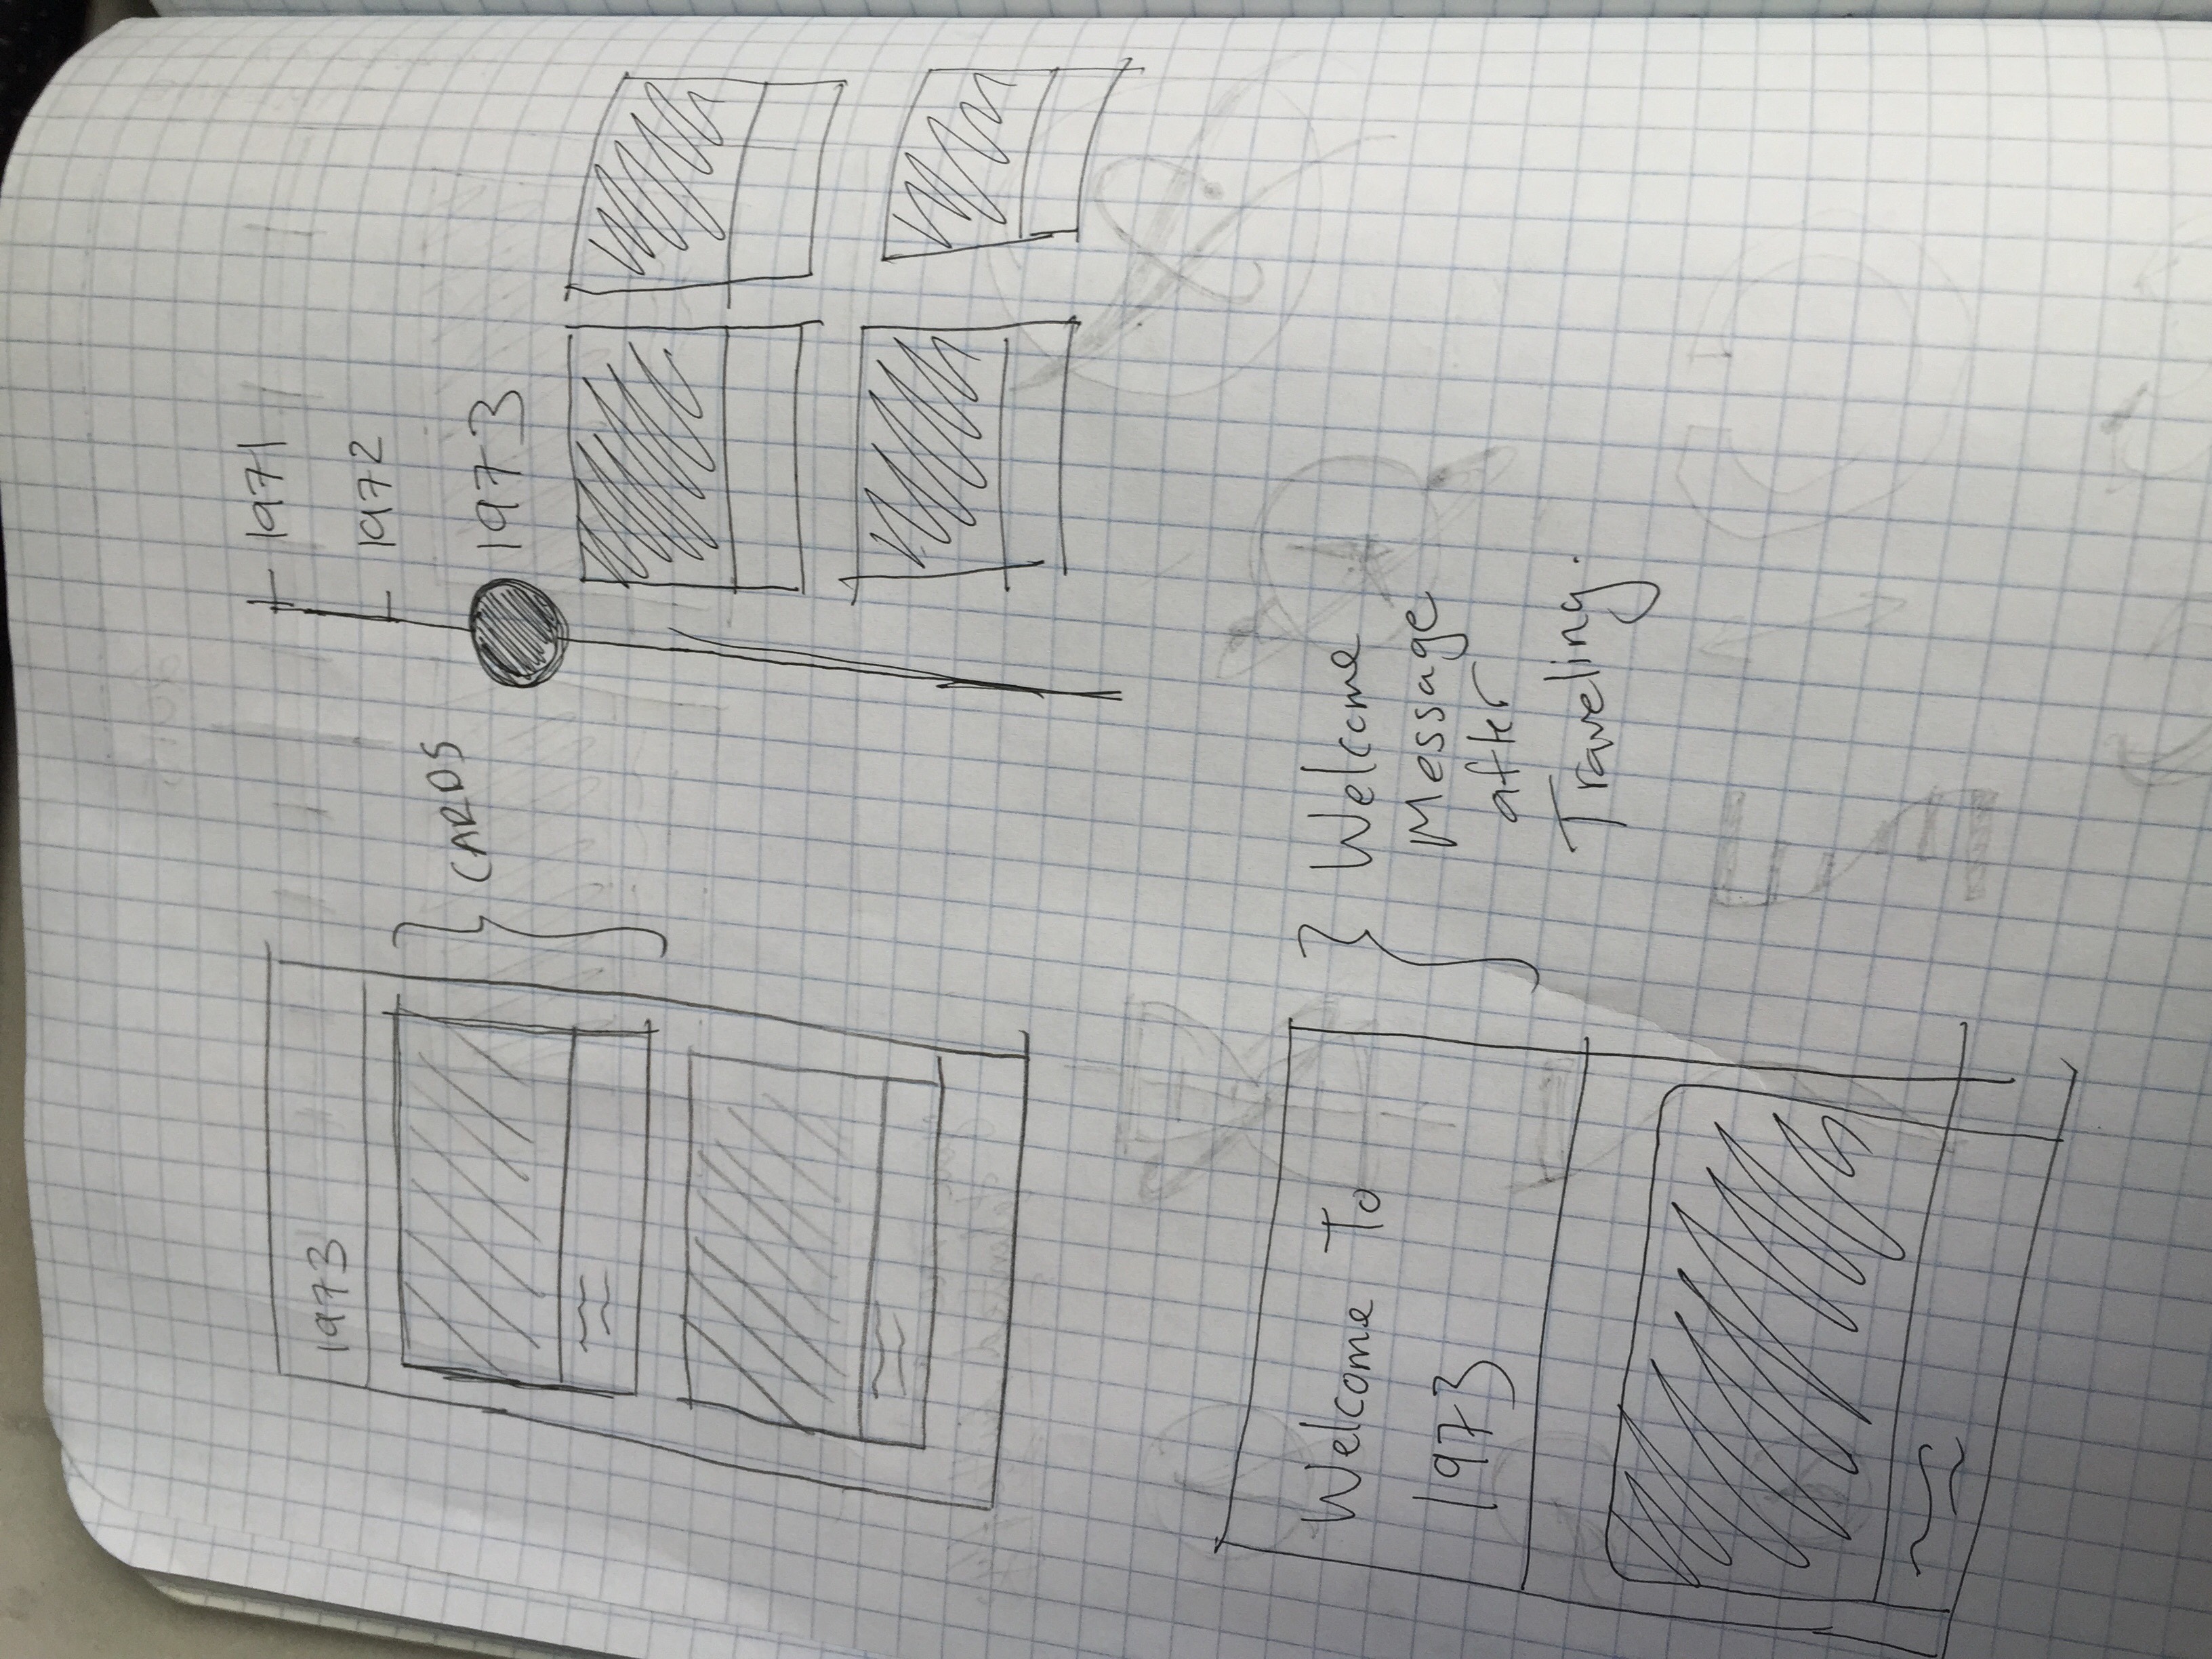 1973
CARDS
1971
1972
1973
Welcome To
1973
Welcome
Message
after
Traveling.